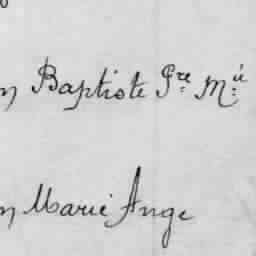 n Baptiste Pre M.ié
n Marie Ange